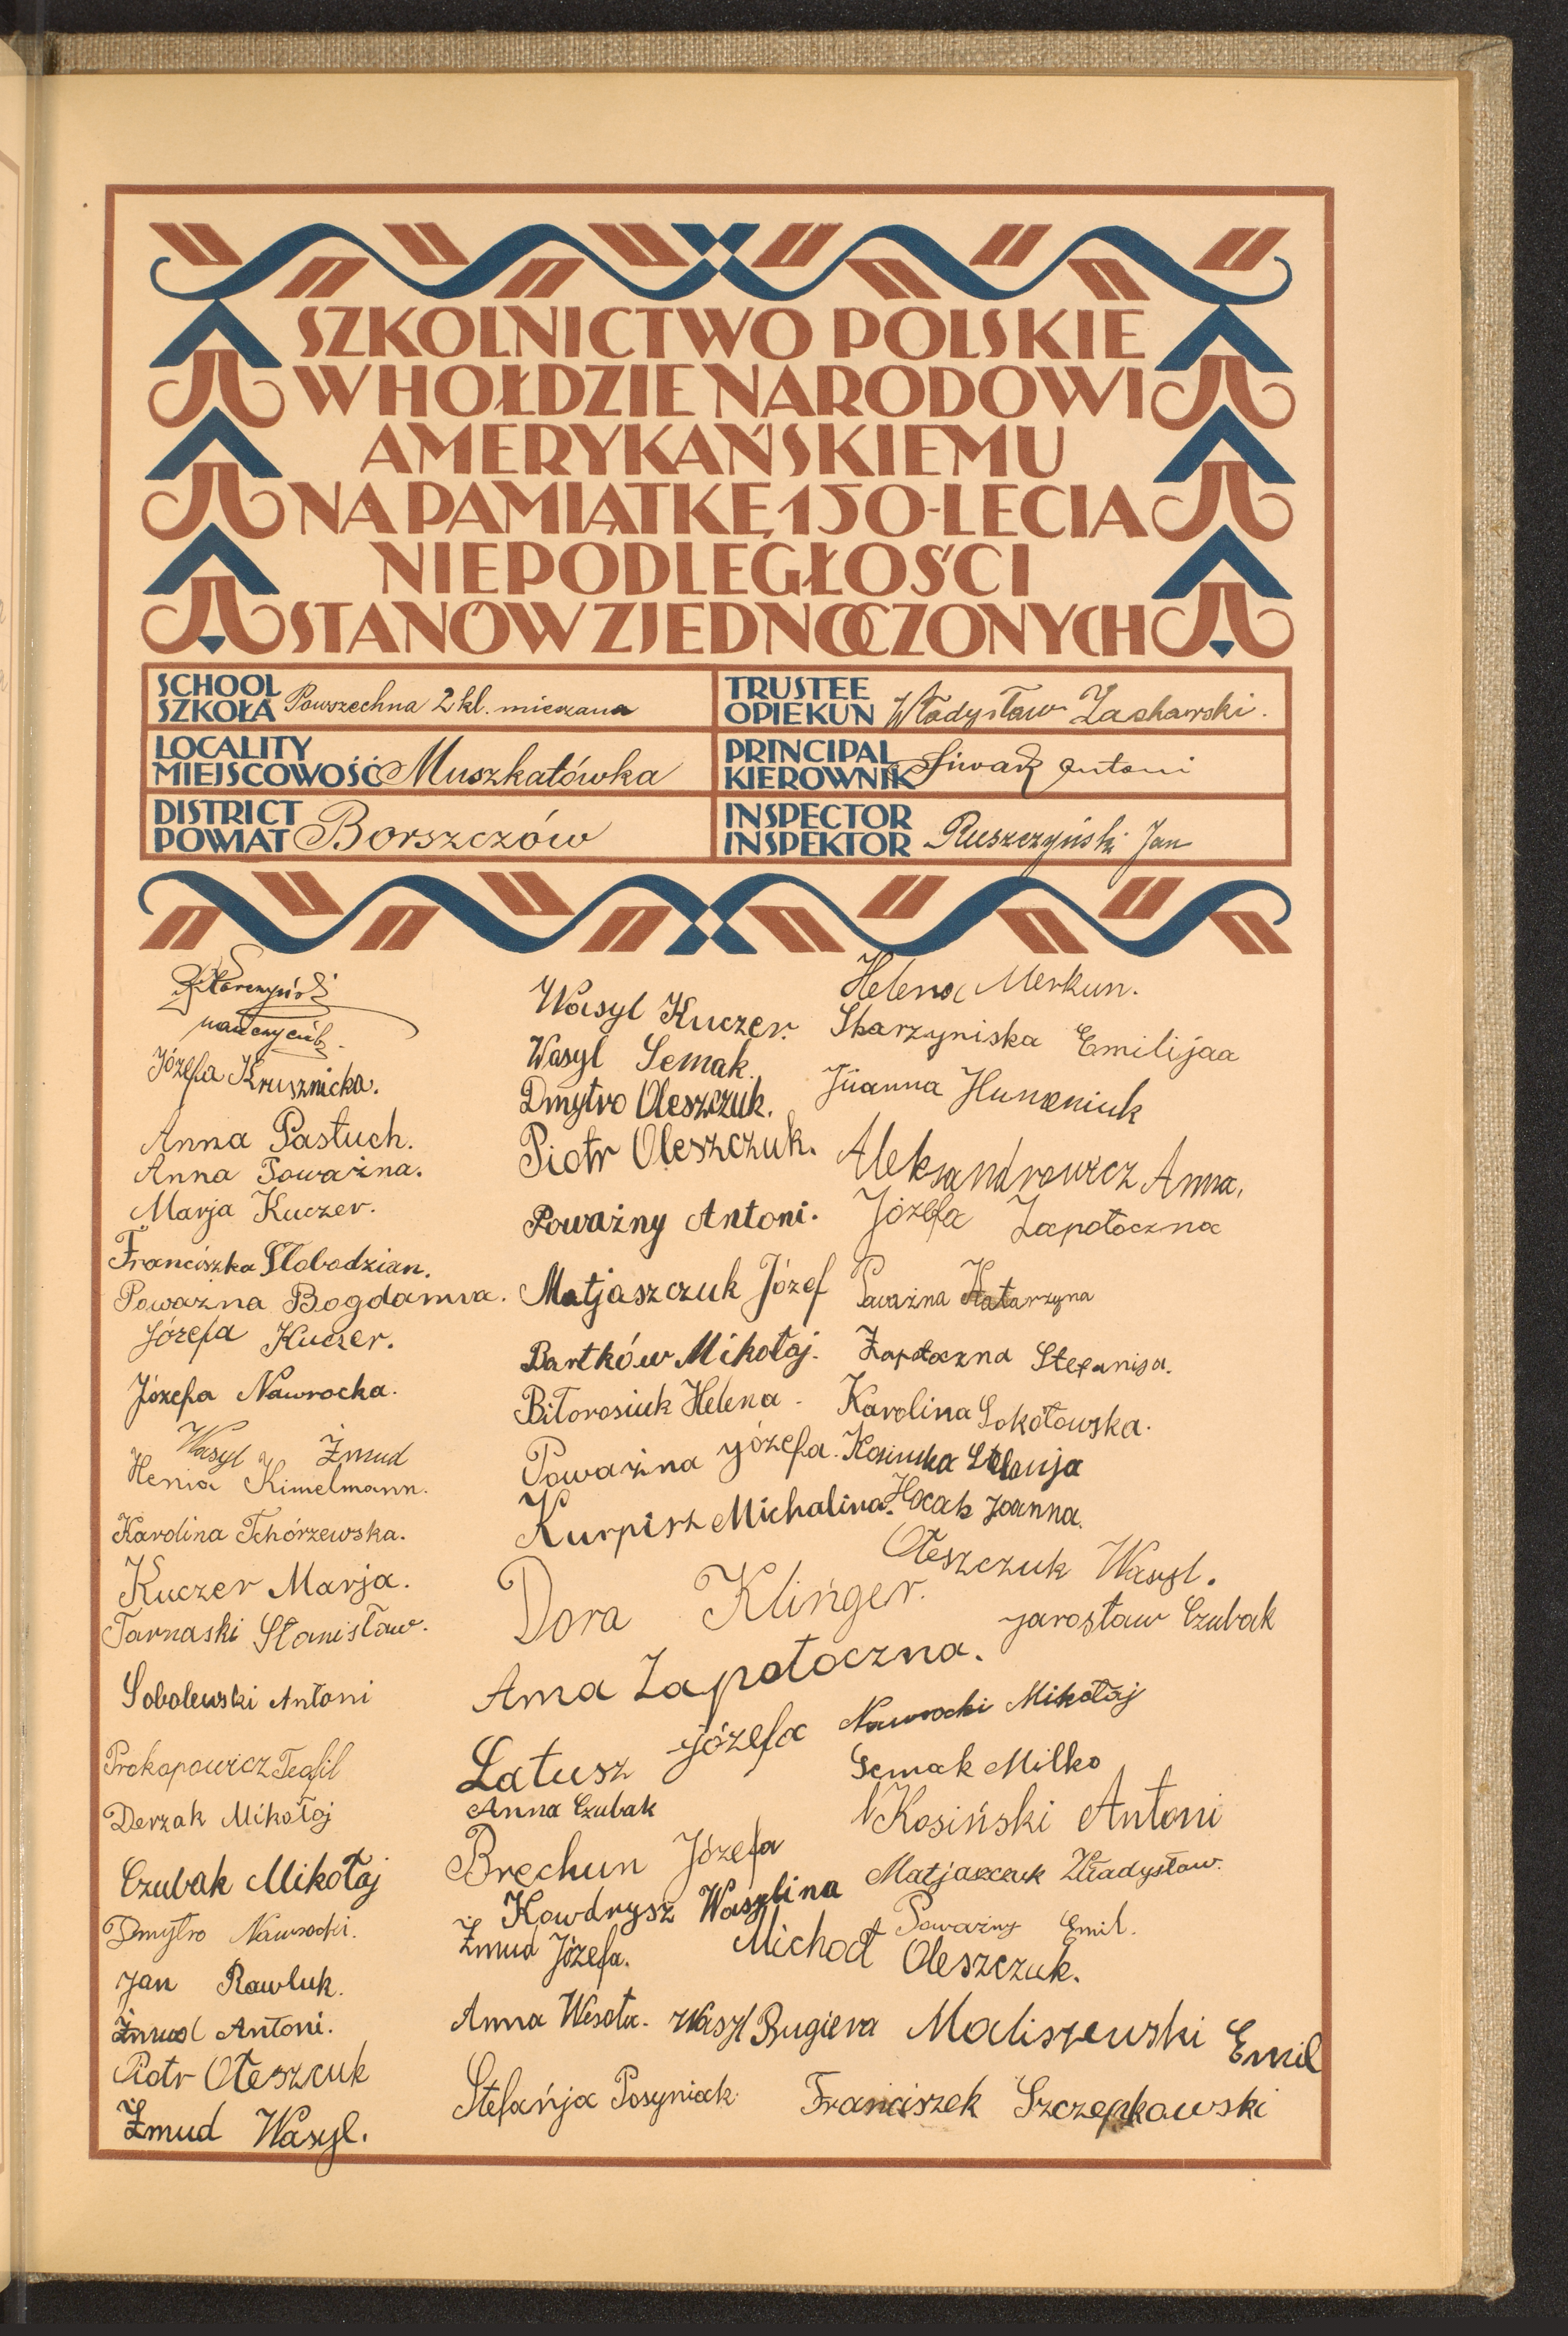 SZKOLNICTWO POLSKIE
W HOŁDZIE NARODOWI
AMERYKAŃSKIEMU
NA PAMIĄTKĘ 150-LECIA
NIEPODLEGŁOŚCI
STANÓW ZJEDNOCZONYCH
SCHOOL
SZKOŁA Powszechna 2 kl. mieszana
LOCALITY
MIEJSCOWOŚĆ Muszkatówka
DISTRICT
POWIAT Borszczów
TRUSTEE
OPIEKUN Władysław Zacharski.
PRINCIPAL
KIEROWNIK Antoni
INSPECTOR
INSPEKTOR Ruszczyński Jan
Józefa Krusznicka.
Anna Pastuch.
Anna Poważna.
Marja Kuczer.
Franciszka Słobodzian.
Poważna Bogdanna.
Józefa Kuczer.
Józefa Nawrocka.
Wasyl Żmud
Henia Kimelmann.
Karolina Tchórzewska.
Kuczer Marja.
Tarnaski Stanisław.
Sobolewski Antoni
Prokopowicz Teofil
Derzak Mikołaj
Czubak Mikołaj
Dmytro Nawrocki.
Jan Rawluk.
Żmud Antoni.
Piotr Ołeszcuk
Żmud Wasyl.
Wasyl Kuczer.
Wasyl Semak.
Dmytro Oleszczuk.
Piotr Oleszczuk.
Poważny Antoni.
Matjaszczuk Józef
Bartków Mikołaj.
Biłorosiuk Helena.
Poważna Józefa.
Kurpisz Michalina.
Dora Klinger.
Anna Zapotoczna.
Łatusz Józefa
Anna Czubak
Brechun Józefa
Kowdrysz Wasylina
Żmud Józefa.
Anna Wesoła.
Stefańja Posyniak
Helena Merkun.
Skarzyniska Emilijaa
Jüanna Humeniuk
Aleksandrowicz Anna.
Józefa Zapotoczna
Poważna Katarzyna
Zapotoczna Stefanija.
Karolina Sokołowska.
Joanna.
Ołeszczuk Wasyl.
Jarosław Czubak
Nawrocki Mikołaj
Semak Milko
Kosiński Antoni
Matjaszczuk Władysław.
Poważny Emil.
Michoał Oleszczuk.
Wasyl Bugiera
Maliszewski Emil
Franciszek Szczepkowski